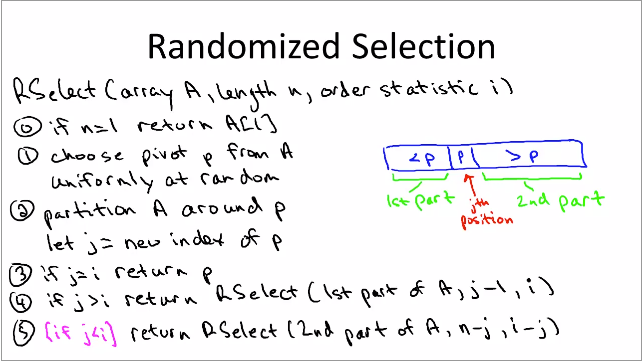 Randomized Selection
RSelect (array A, length n, order statistic i)
⓪ if n=1 return A[1]
① choose pivot p from A
uniformly at random
② partition A around p
let j = new index of p
③ if j=i return p
④ if j>i return RSelect (1st part of A, j-1, i)
⑤ [if j<i] return RSelect (2nd part of A, n-j, i-j)
<p p >p
1st part jth position 2nd part